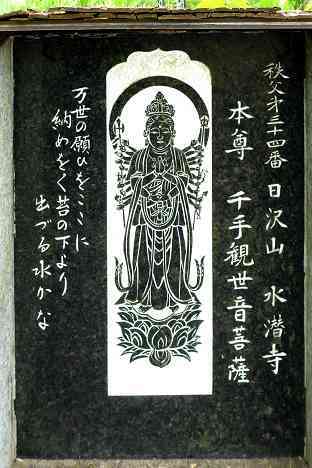 秩父才三十四番 日沢山 水潜寺
本尊 千手觀世音菩薩
万世の願ひをこゝに
納めをく苔の下より
出づる水かな